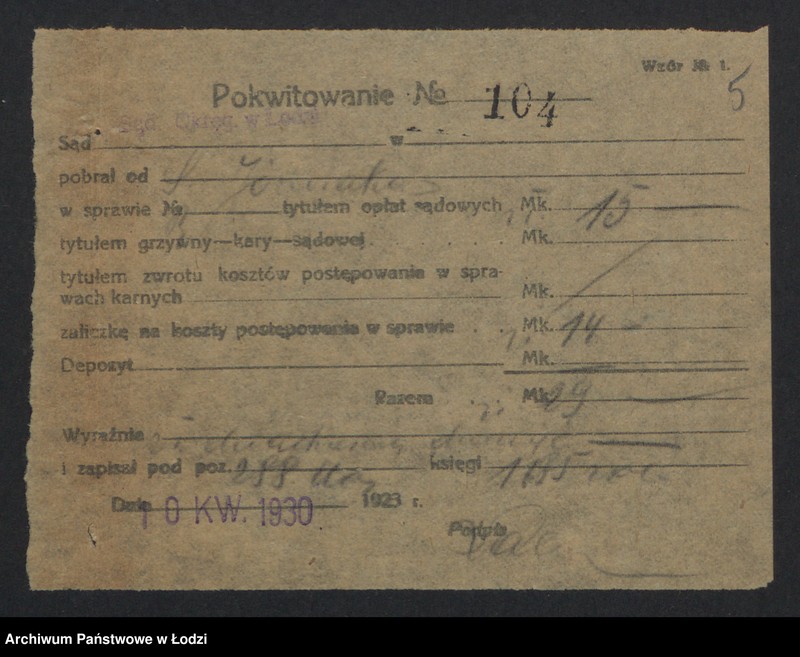 Wzór № 1.
5
Pokwitowanie № 104
Sąd Okręg. w Łodzi
Sąd w
pobrał od
w sprawie № tytułem opłat sądowych Mk. 15
tytułem grzywny—kary—sądowej Mk.
tytułem zwrotu kosztów postępowania w spra-
wach karnych Mk.
zaliczkę na koszty postępowania w sprawie Mk. 14
Depozyt Mk.
Razem Mk. 29
Wyraźnie dwadzieścia dziewięć
i zapisał pod poz. 288 księgi
Dnia 1923 r.
10 KW. 1930
Podpis
Archiwum Państwowe w Łodzi